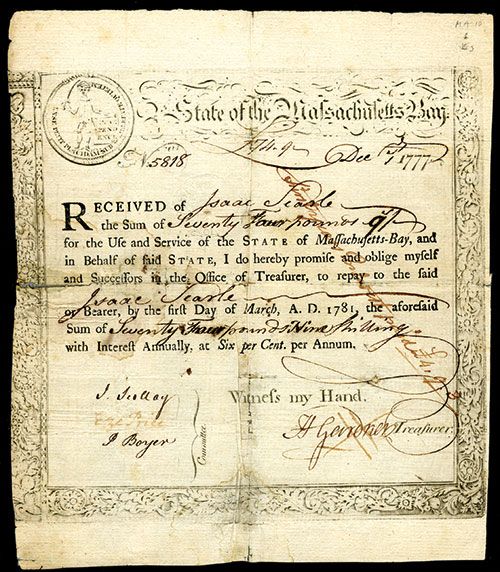 State of the Massachusetts Bay.
No. 5818
£74.9
Decr 1st 1777
RECEIVED of Isaac Searle
the Sum of Seventy Four pounds 9/
for the Use and Service of the STATE of Massachusetts-Bay, and
in Behalf of said STATE, I do hereby promise and oblige myself
and Successors in the Office of Treasurer, to repay to the said
Isaac Searle
or Bearer, by the first Day of March, A. D. 1781, the aforesaid
Sum of Seventy Four pounds Nine Shilling
with Interest Annually, at Six per Cent. per Annum.
Witness my Hand.
J. Scollay
P Boyer
Committee
H Gardner Treasurer